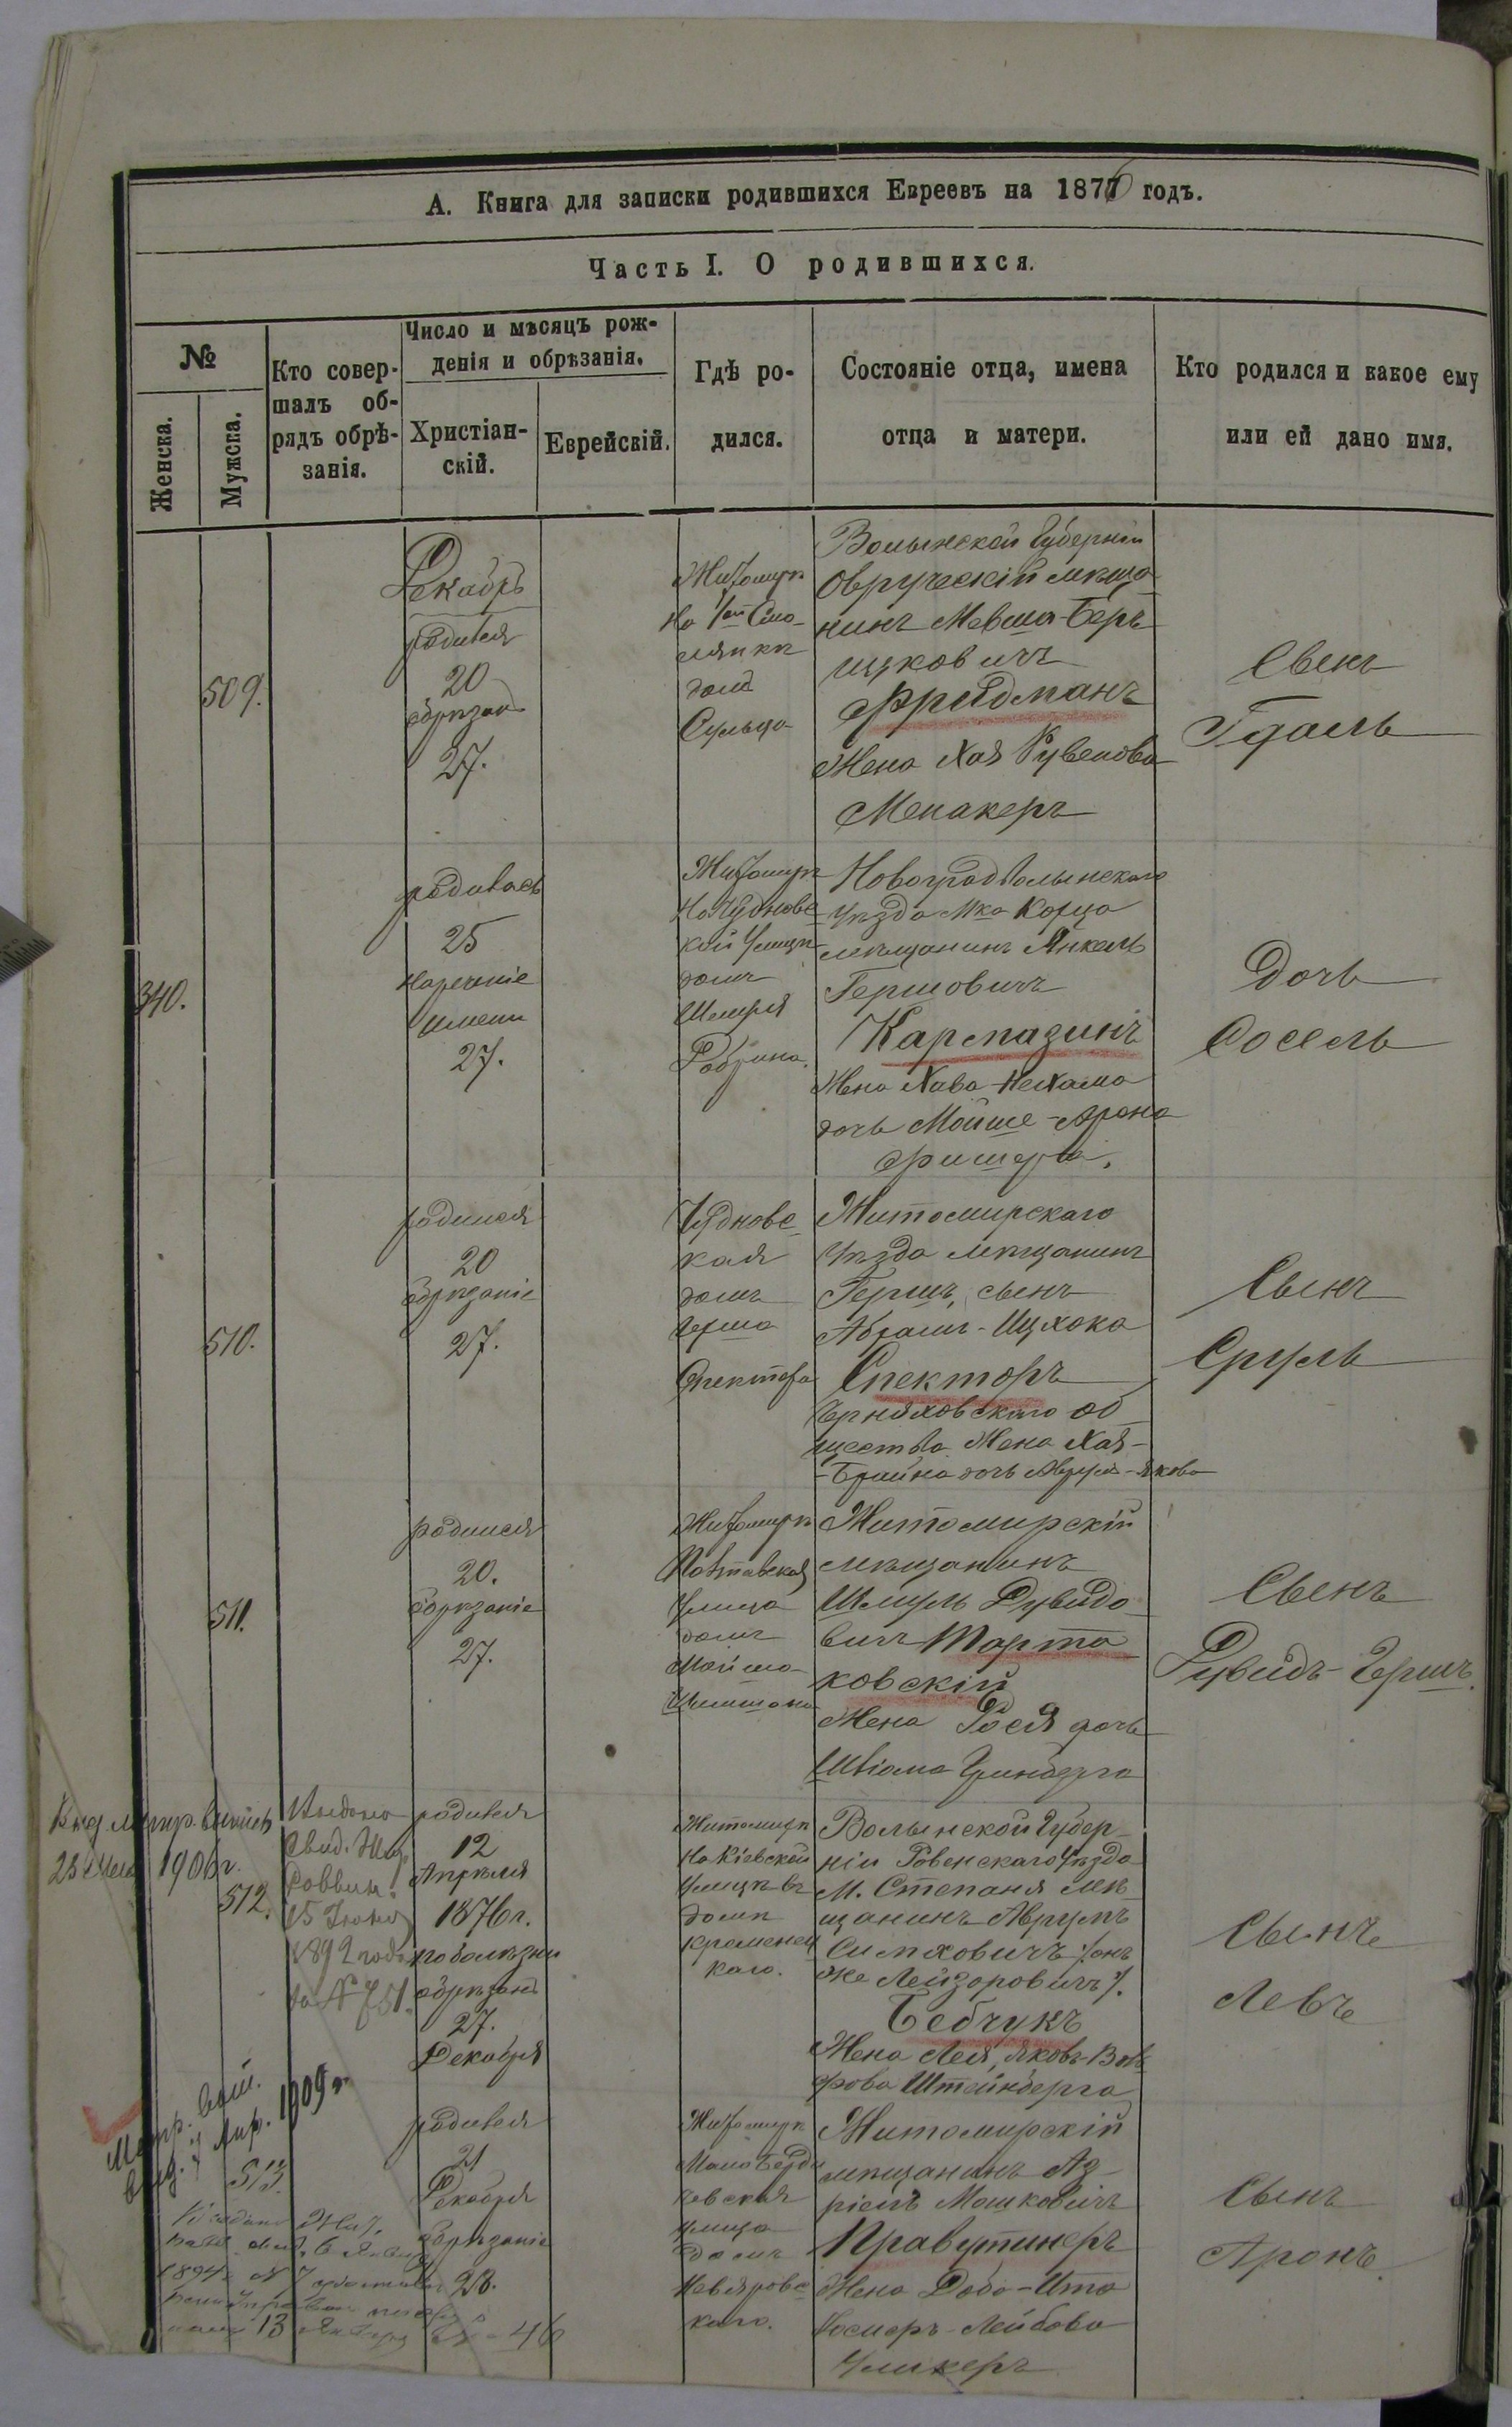 А. Книга для записки родившихся Евреевъ на 1876 годъ.
Часть I. О родившихся.
№
Женска.
Мужска.
Кто совер-
шалъ об-
рядъ обрѣ-
занія.
Число и мѣсяцъ рож-
денія и обрѣзанія.
Христіан-
скій.
Еврейскій.
Гдѣ ро-
дился.
Состояніе отца, имена
отца и матери.
Кто родился и какое ему
или ей дано имя.
509.
Декабрь
родился
20
обрезан
27.
Житомирѣ
На 1ой Смо-
лянкѣ
домъ
Сульца
Волынской Губерніи
Овруческій мѣща-
нинъ Мевша-Беръ
Ицковичъ
Фридманъ
Жена Хая Рувенова
Менакеръ
Сынъ
Гдаль
340.
родилась
25
нареченіе
имени
27.
Житомирѣ
На Чуднове-
кой Улицѣ
домъ
Шмуля
Рабина.
Новоградволынскаго
Уѣзда Мка Корца
мѣщанинъ Янкель
Гершовичъ
Кармазинъ
Жена Хава-Нехама
дочь Мойше-Арона
Фишера.
Дочь
Сосель
510.
родился
20
обрѣзаніе
27.
Чудновс
кая
домъ
Герша
Спектора
Житомирскаго
Уѣзда мѣщанинъ
Гершъ, сынъ
Абрамъ-Ицхока
Спекторъ
Черняховскаго об
щества Жена Хая-
-Брайна дочь Аврум-Якова
Сынъ
Сруль
511.
родился
20.
обрѣзаніе
27.
Житомирѣ
Полтавская
Улица
домъ
Мойшо
Цимтона
Житомирскій
мѣщанинъ
Шмуль Дувидо
вичъ Тарта
ковскій
Жена Рося дочь
Швіома Гринберга
Сынъ
Дувидъ-Гершъ.
Выд. метр. выпись
25 1906 г.
512.
Выдано
Свид. Жит.
Раввин.
15 Іюня
1892 года
за № 751.
родился
12
Апрѣля
1876 г.
по болѣзни
обрѣзанъ
27.
Декабря
Житомирѣ
На Кіевской
Улицѣ въ
домѣ
Кременец
каго.
Волынской Губер-
ніи Ровенскаго Уѣзда
М. Степаня мѣ
щанинъ Аврумъ
Симховичъ /:онъ
же Лейзоровичъ:/.
Бебчукъ
Жена Лея, Яковъ-Воль
фова Штейнберга
Сынъ
Левъ
Метр. вып.
выд. 7 Апр. 1909 г.
513.
родился
21
Декабря
обрѣзаніе
28.
Житомирѣ
Мало Берди
чевская
улица
домъ
Невяровс
каго.
Житомирскій
мѣщанинъ Аз-
ріель Мошковичъ
Правутинеръ
Жена Доба-Ита
Іосперъ-Лейбова
Сынъ
Аронъ.
6 Января
1894 № 7
13 Января № 46